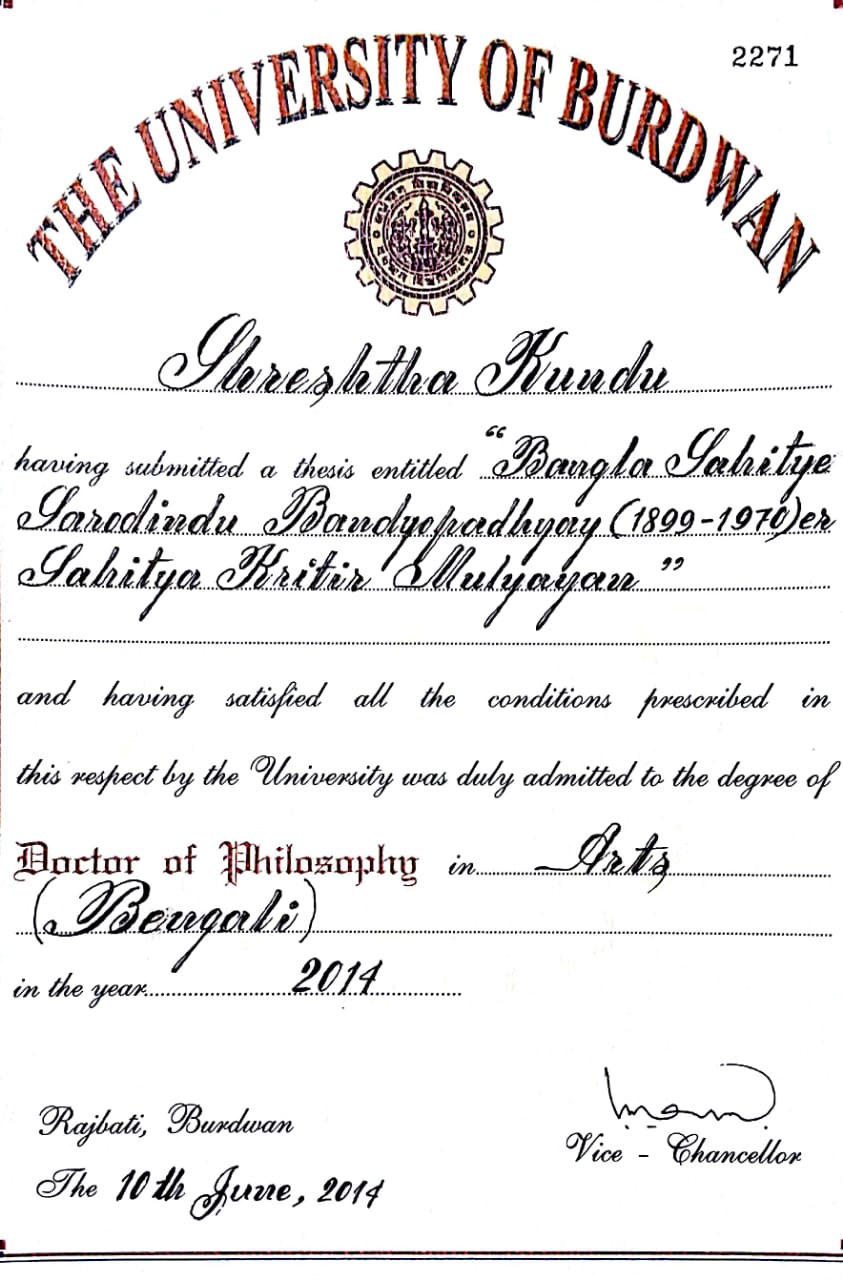 2271
THE UNIVERSITY OF BURDWAN
Shreshtha Kundu
having submitted a thesis entitled "Bangla Sahitye
Sarodindu Bandyopadhyay (1899-1970)er
Sahitya Kritir Mulyayan"
and having satisfied all the conditions prescribed in
this respect by the University was duly admitted to the degree of
Doctor of Philosophy in Arts
(Bengali)
in the year 2014
Rajbati, Burdwan
Vice - Chancellor
The 10th June, 2014